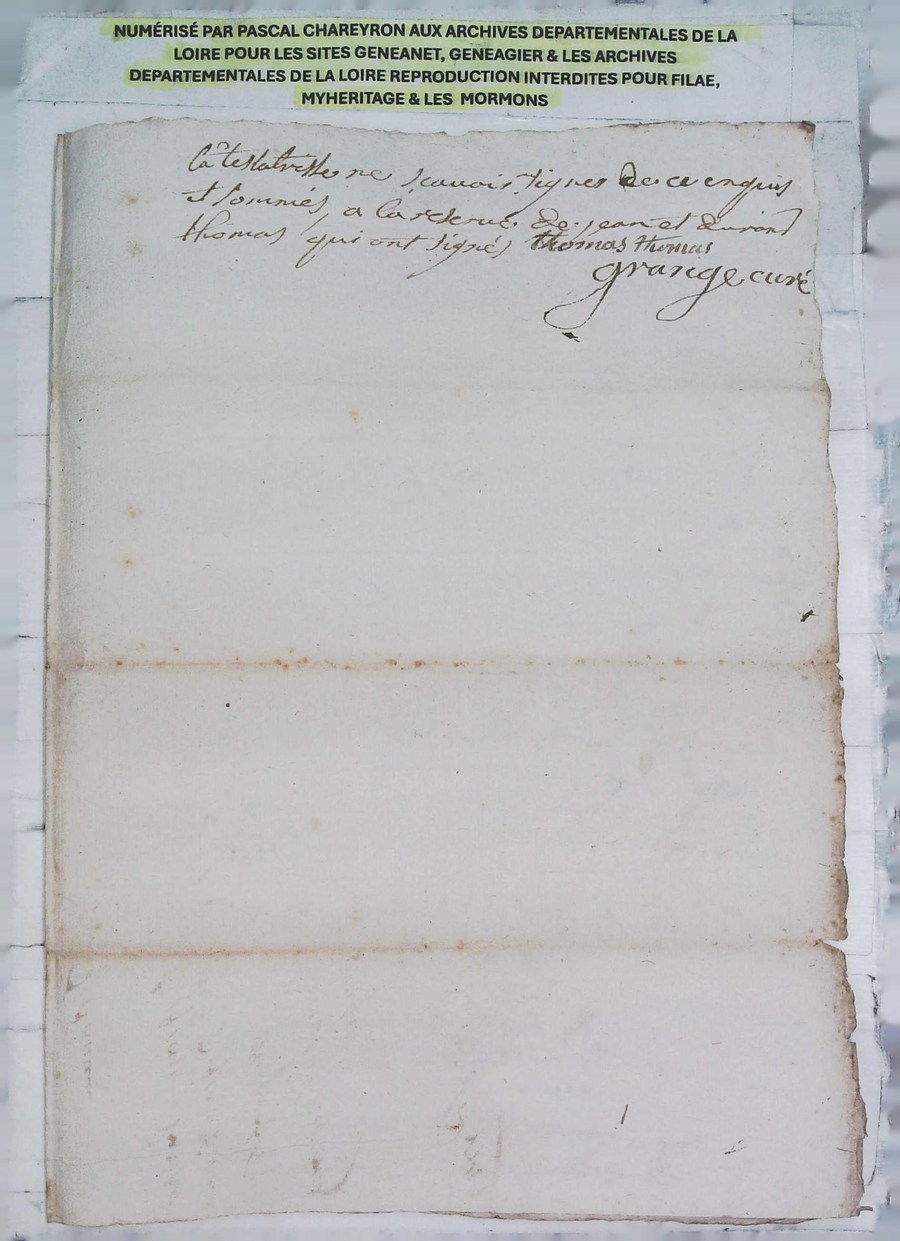 NUMÉRISÉ PAR PASCAL CHAREYRON AUX ARCHIVES DEPARTEMENTALES DE LA
LOIRE POUR LES SITES GENEANET, GENEAGIER & LES ARCHIVES
DEPARTEMENTALES DE LA LOIRE REPRODUCTION INTERDITES POUR FILAE,
MYHERITAGE & LES MORMONS
testatrisse ne scavoir signer de ce enquis
et sommés, a la reserve de jean et durand
thomas qui ont signés thomas thomas
grange curé